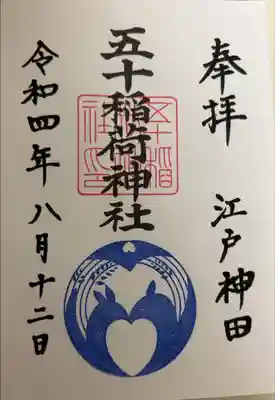 奉拝
江戸神田
五十稲荷神社
令和四年八月十二日